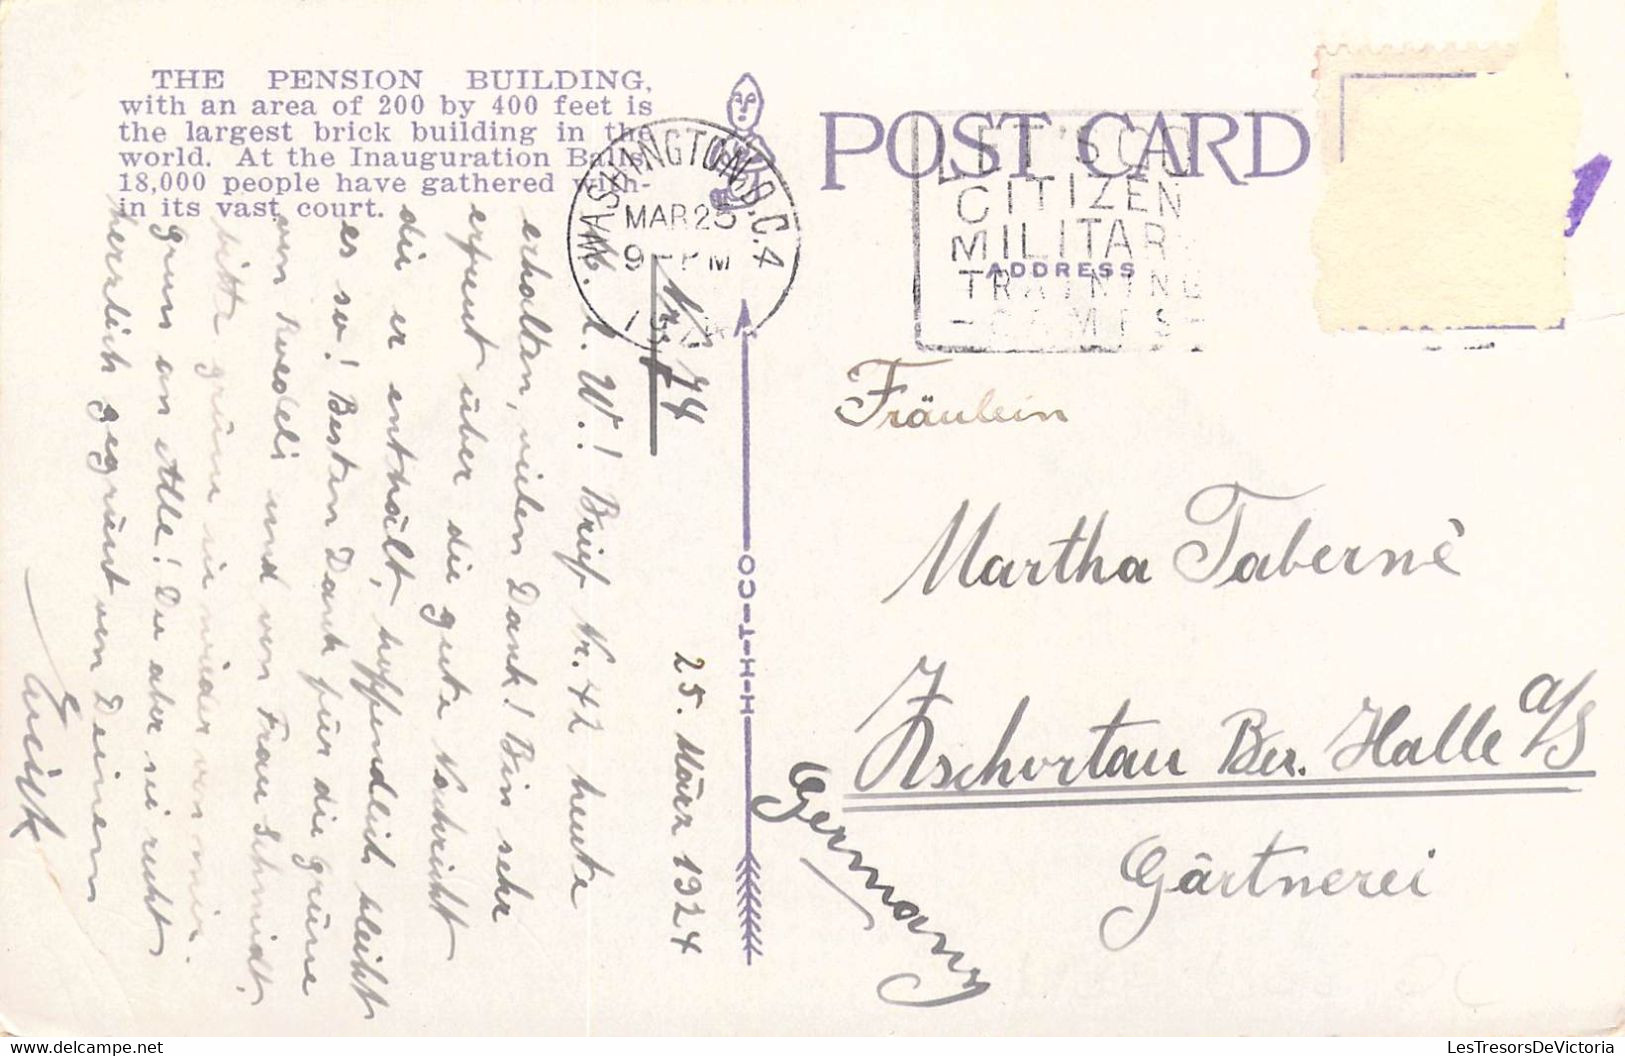 THE PENSION BUILDING,
with an area of 200 by 400 feet is
the largest brick building in the
world. At the Inauguration Balls,
18,000 people have gathered with-
in its vast court.
POST CARD
ADDRESS
WASHINGTON, D.C. 4
MAR 25
9 - PM
1924
LET'S GO
CITIZEN
MILITARY
TRAINING
- CAMPS -
H-H-T-CO
Nr. 74
25. März 1924
M. l. W.! Brief Nr. 42 heute
erhalten, vielen Dank! Bin sehr
erfreut über die gute Nachricht
die er enthält, hoffendlich bleibt
es so! Besten Dank für die Grüsse
von und von Frau Schmidt,
bitte grüsse sie wieder von mir.
Gruss an Alle! Du aber sei recht
herzlich gegrüsst von Deinem
Erich
Fräulein
Martha Taberné
Zschortau Bez. Halle a/S
Gärtnerei
Germany
LesTresorsDeVictoria.com
LesTresorsDeVictoria